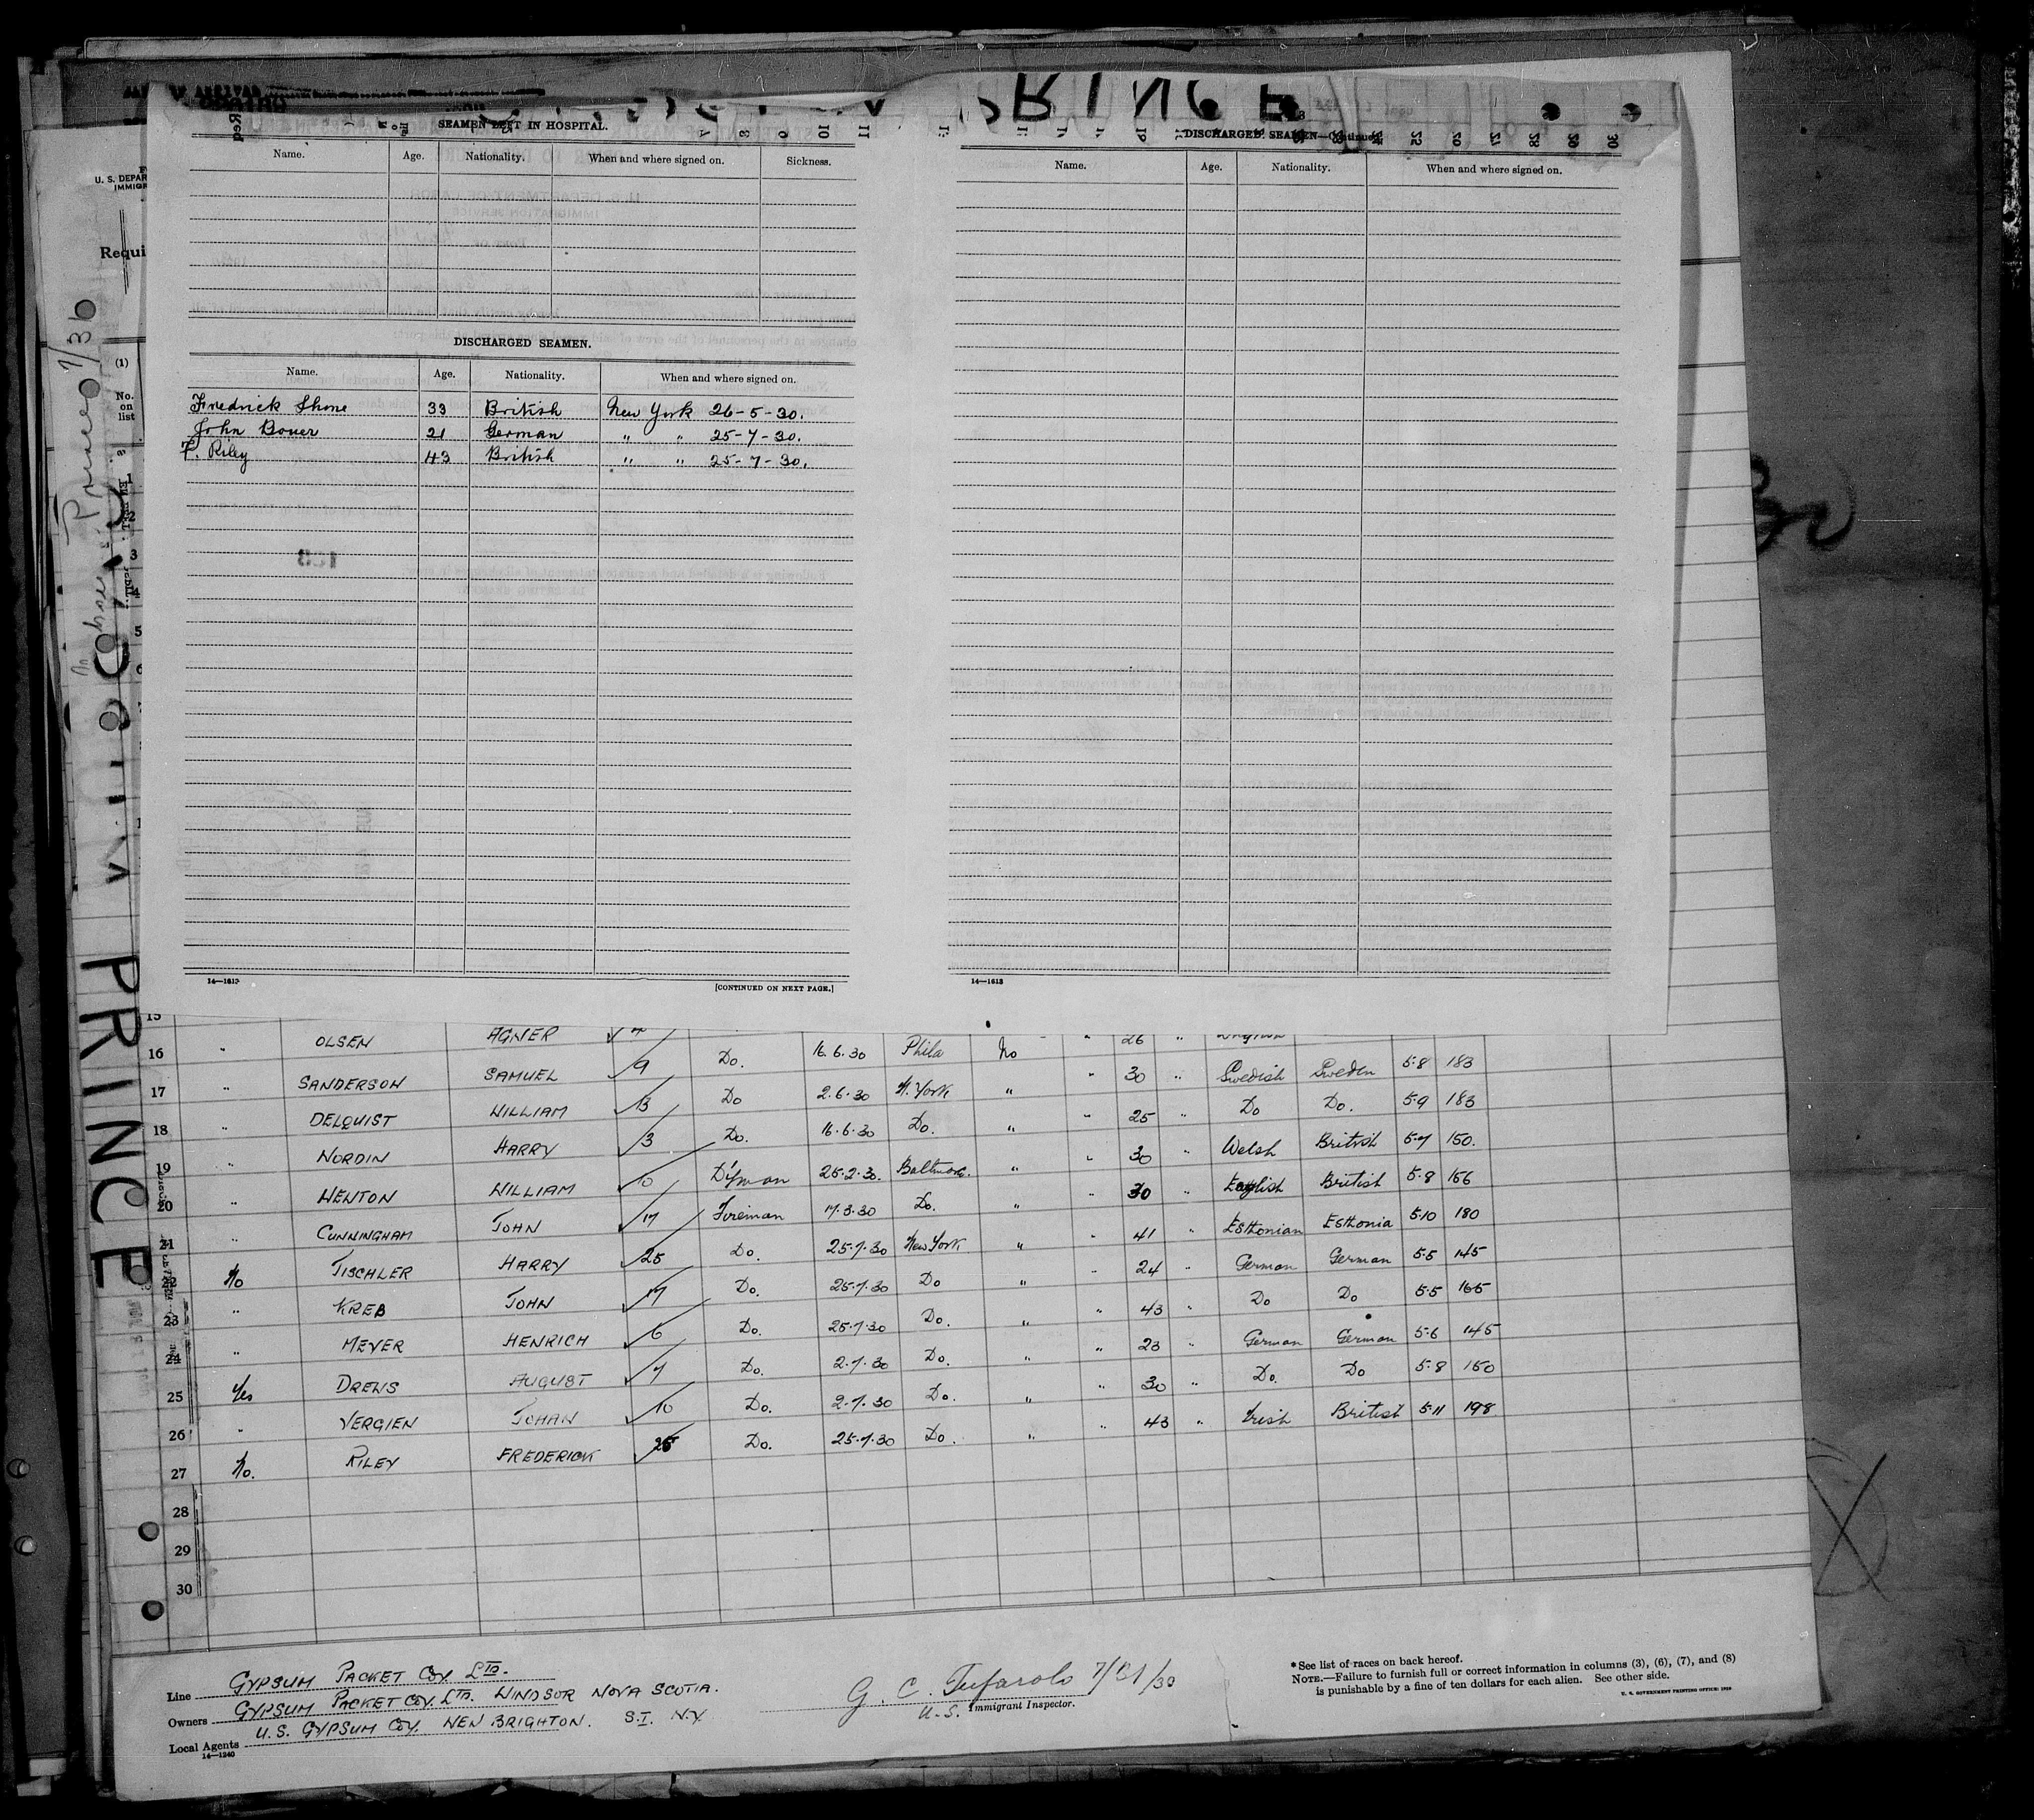 SEAMEN LEFT IN HOSPITAL.
Name. Age. Nationality. When and where signed on. Sickness.
DISCHARGED SEAMEN.
Name. Age. Nationality. When and where signed on.
Fredrick Shone 33 British New York 26-5-30.
John Bouer 21 German " " 25-7-30.
F. Riley 43 British " " 25-7-30.
14—1613
[CONTINUED ON NEXT PAGE.]
DISCHARGED SEAMEN—Continued
Name. Age. Nationality. When and where signed on.
14—1613
U. S. DEPAR
IMMIGR
Requi
(1)
No.
on
list
PRINCE
15 " OLSEN AGNER 26 "
16 " SANDERSON SAMUEL 9 Do. 16.6.30 Phila No " 30 " Swedish Sweden 5-8 183
17 " DELQUIST WILLIAM 13 Do 2.6.30 N. York " " 25 " Do Do. 5-9 183
18 " NORDIN HARRY 3 Do. 16.6.30 Do. " " 30 " Welsh British 5-7 150.
19 " HENTON WILLIAM 10 D'yman 25.2.30. Baltimore. " " 30 " English British 5-8 156
20 " CUNNINGHAM JOHN 17 Fireman 17.3.30 Do. " " 41 " Esthonian Esthonia 5-10 180
21 No TISCHLER HARRY 25 Do. 25.7.30 New York " " 24 " German German 5-5 145
22 " KREB JOHN 17 Do. 25.7.30 Do " " 43 " Do Do 5-5 165
23 " MEYER HENRICH 6 Do. 25.7.30 Do. " " 23 " German German 5-6 145
24 Yes DREWS AUGUST 7 Do. 2.7.30 Do. " " 30 " Do. Do 5-8 150
25 " VERGIEN JOHAN 10 Do. 2.7.30 Do. " " 43 " Irish British 5-11 198
26 No. RILEY FREDERICK 25 Do. 25.7.30 Do. "
27
28
29
30
Line GYPSUM PACKET COY. LTD.
Owners GYPSUM PACKET COY. LTD. WINDSOR NOVA SCOTIA.
Local Agents U.S. GYPSUM COY. NEW BRIGHTON. S.I. N.Y.
14—1240
G. C. Tufarolo 7/31/30
U.S. Immigrant Inspector.
*See list of races on back hereof.
NOTE.—Failure to furnish full or correct information in columns (3), (6), (7), and (8)
is punishable by a fine of ten dollars for each alien. See other side.
U. S. GOVERNMENT PRINTING OFFICE: